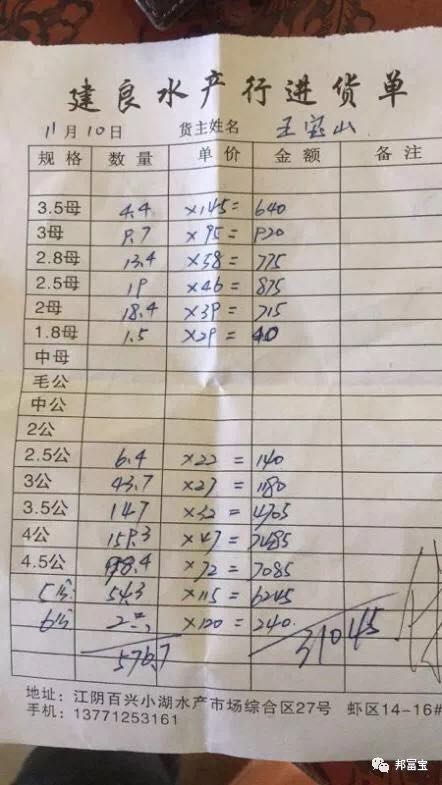 建良水产行进货单
11月10日 货主姓名 王宝山
规格 数量 单价 金额 备注
3.5母 4.4 ×145= 640
3母 9.7 ×95= 920
2.8母 13.4 ×58= 775
2.5母 19 ×46= 875
2母 18.4 ×39= 715
1.8母 1.5 ×29= 40
中母
毛公
中公
2公
2.5公 6.4 ×22= 140
3公 43.7 ×27= 1180
3.5公 147 ×32= 4705
4公 159.3 ×47= 7485
4.5公 98.4 ×72= 7085
5公 54.3 ×115= 6245
6公 ×120= 240
576.7 31045
地址：江阴百兴小湖水产市场综合区27号 虾区14-16#
手机：13771253161
邦富宝